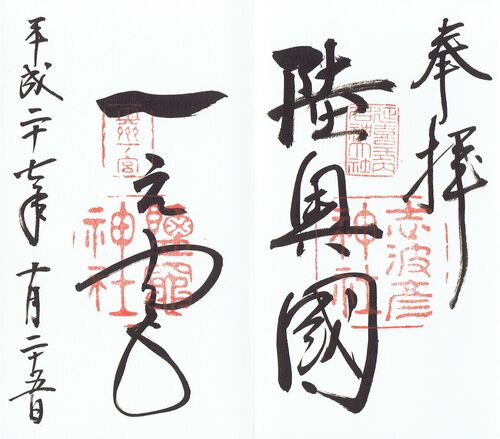 奉拝
陸奥國
延喜式内
名神大社
志波彦
神社
一之宮
奥州一ノ宮
鹽竈
神社
平成二十七年十月二十五日